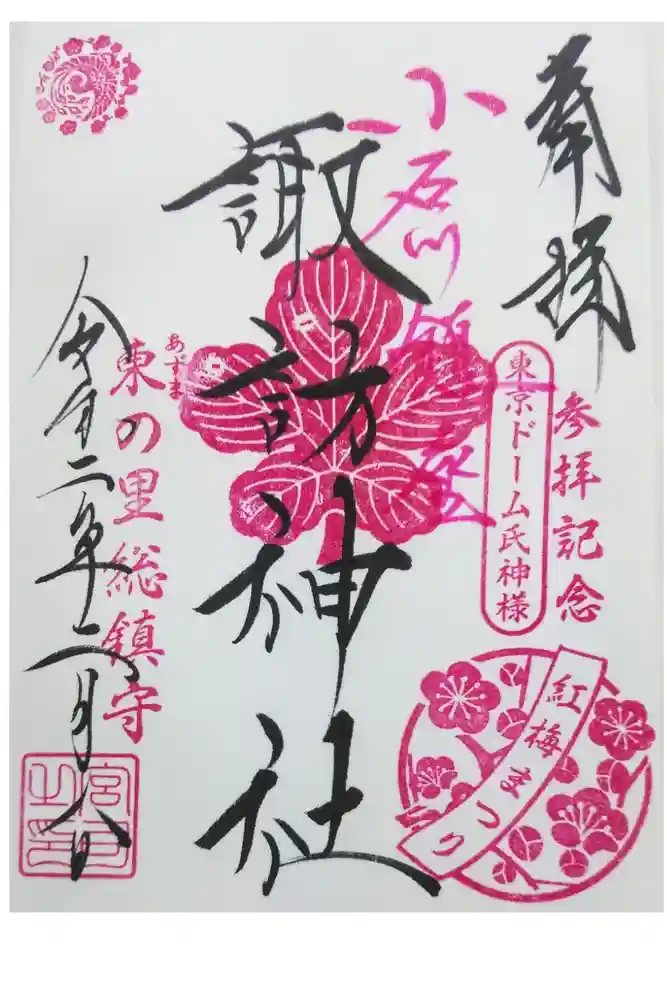 奉拝
参拝記念
東京ドーム氏神様
紅梅まつり
小石川鎮座
諏訪神社
あずま
東の里総鎮守
令和二年二月八日
宮之印